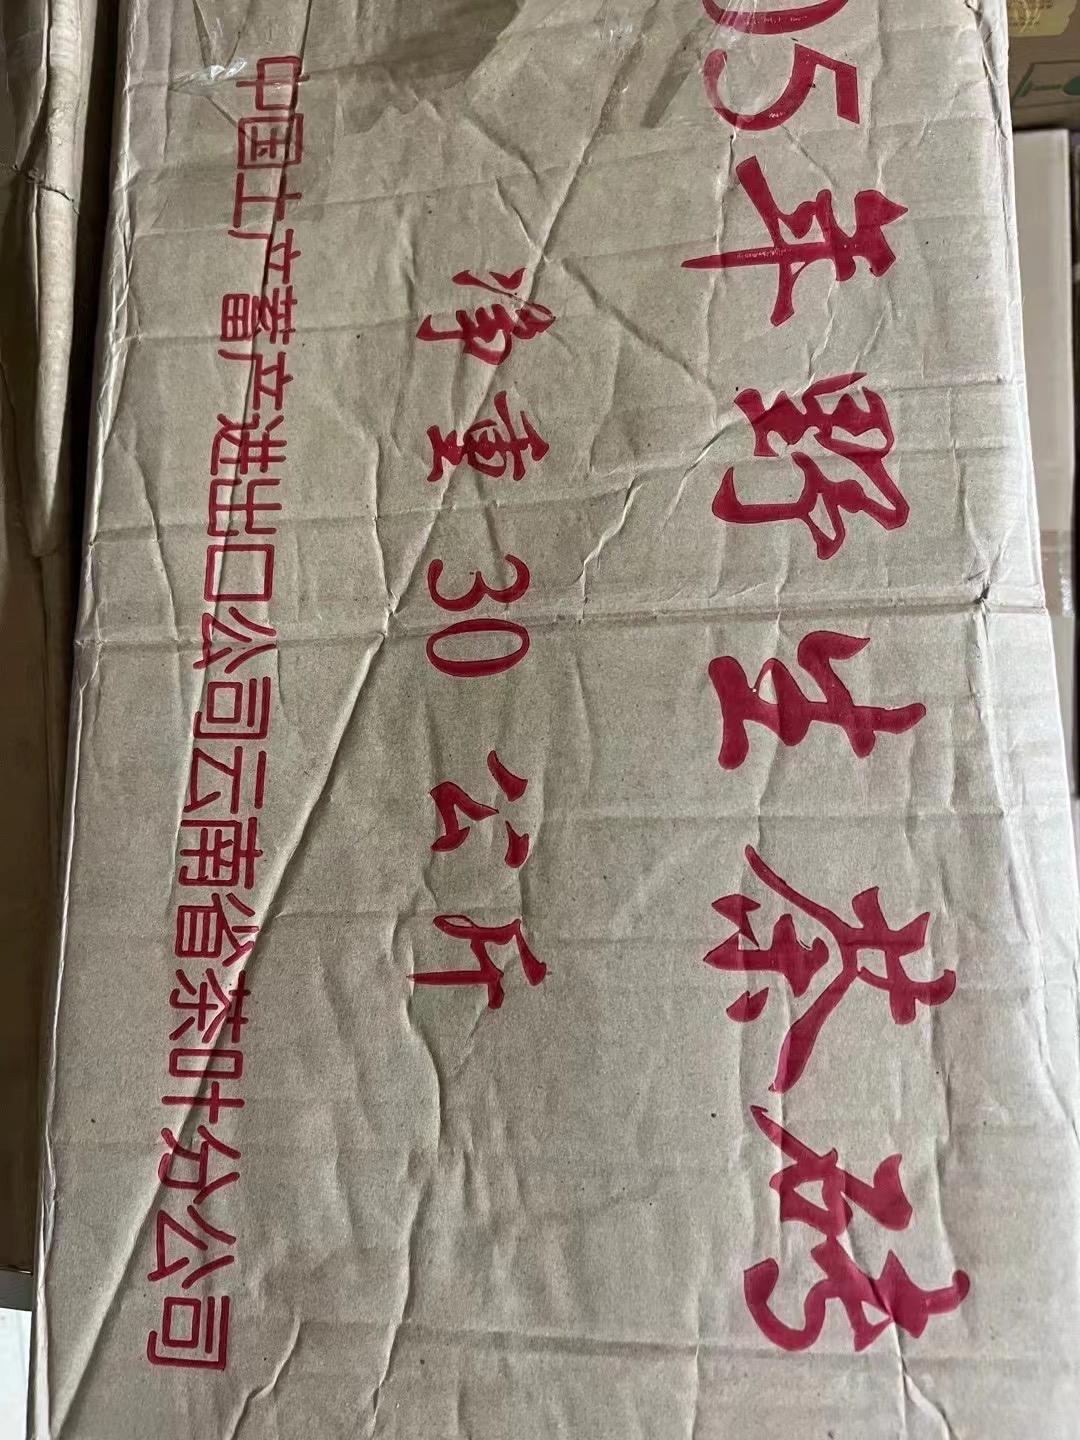 05年野生茶砖
净重30公斤
中国土产畜产进出口公司云南省茶叶分公司